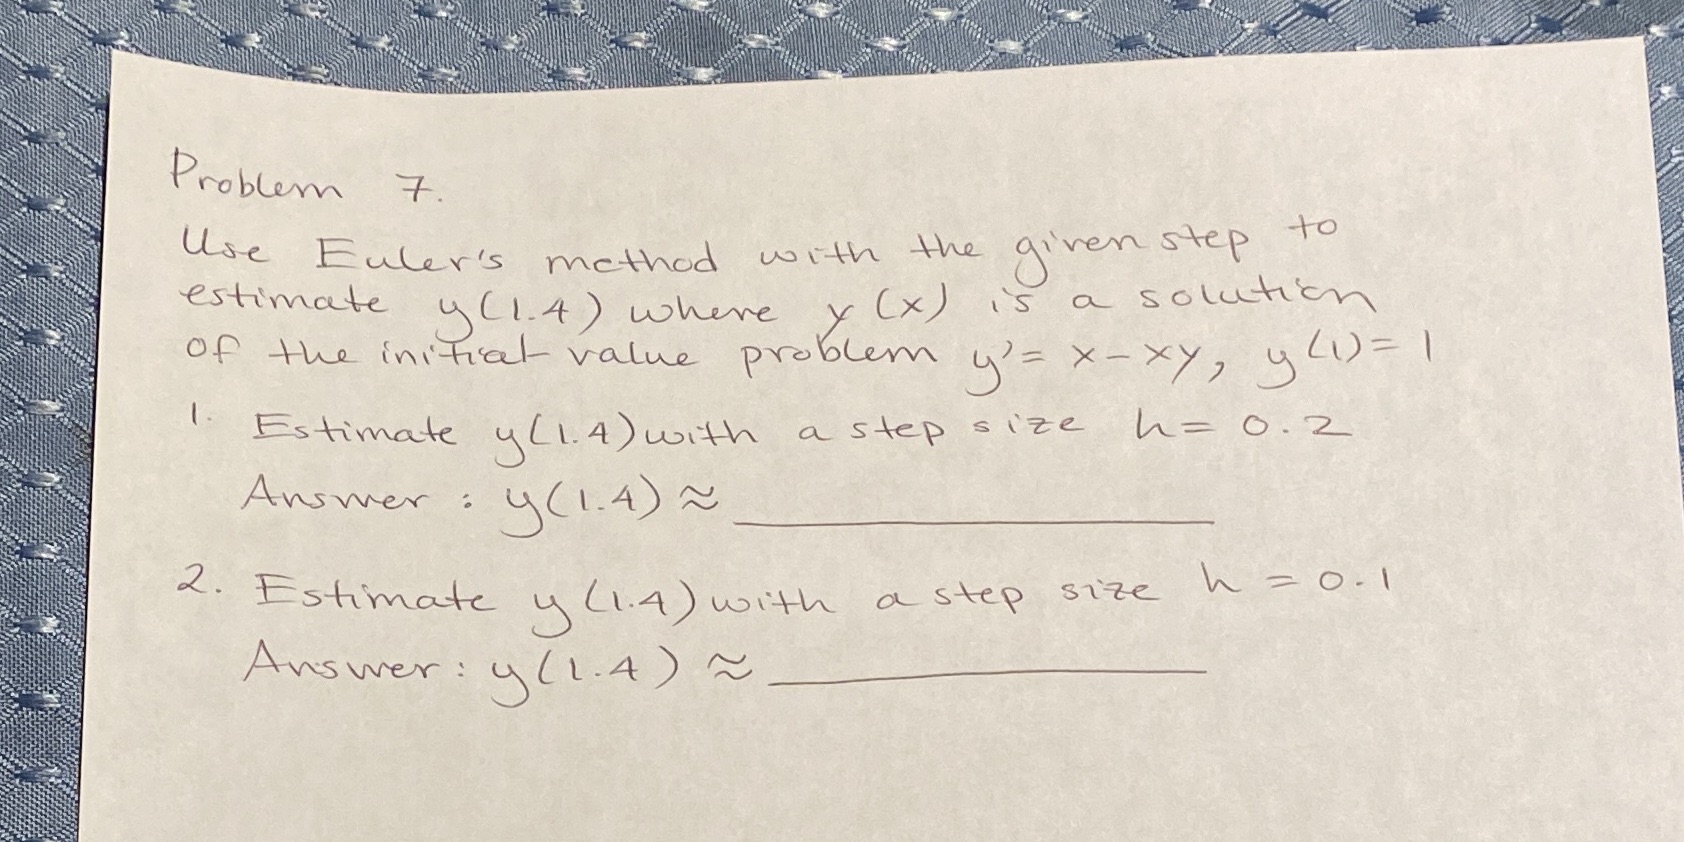 Problem 7.
Use Euler's method with the given step to
estimate y(1.4) where y(x) is a solution
of the initial value problem y'= x-xy, y(1)=1
1. Estimate y(1.4) with a step size h= 0.2
Answer: y(1.4) ≈
2. Estimate y(1.4) with a step size h = 0.1
Answer: y(1.4) ≈